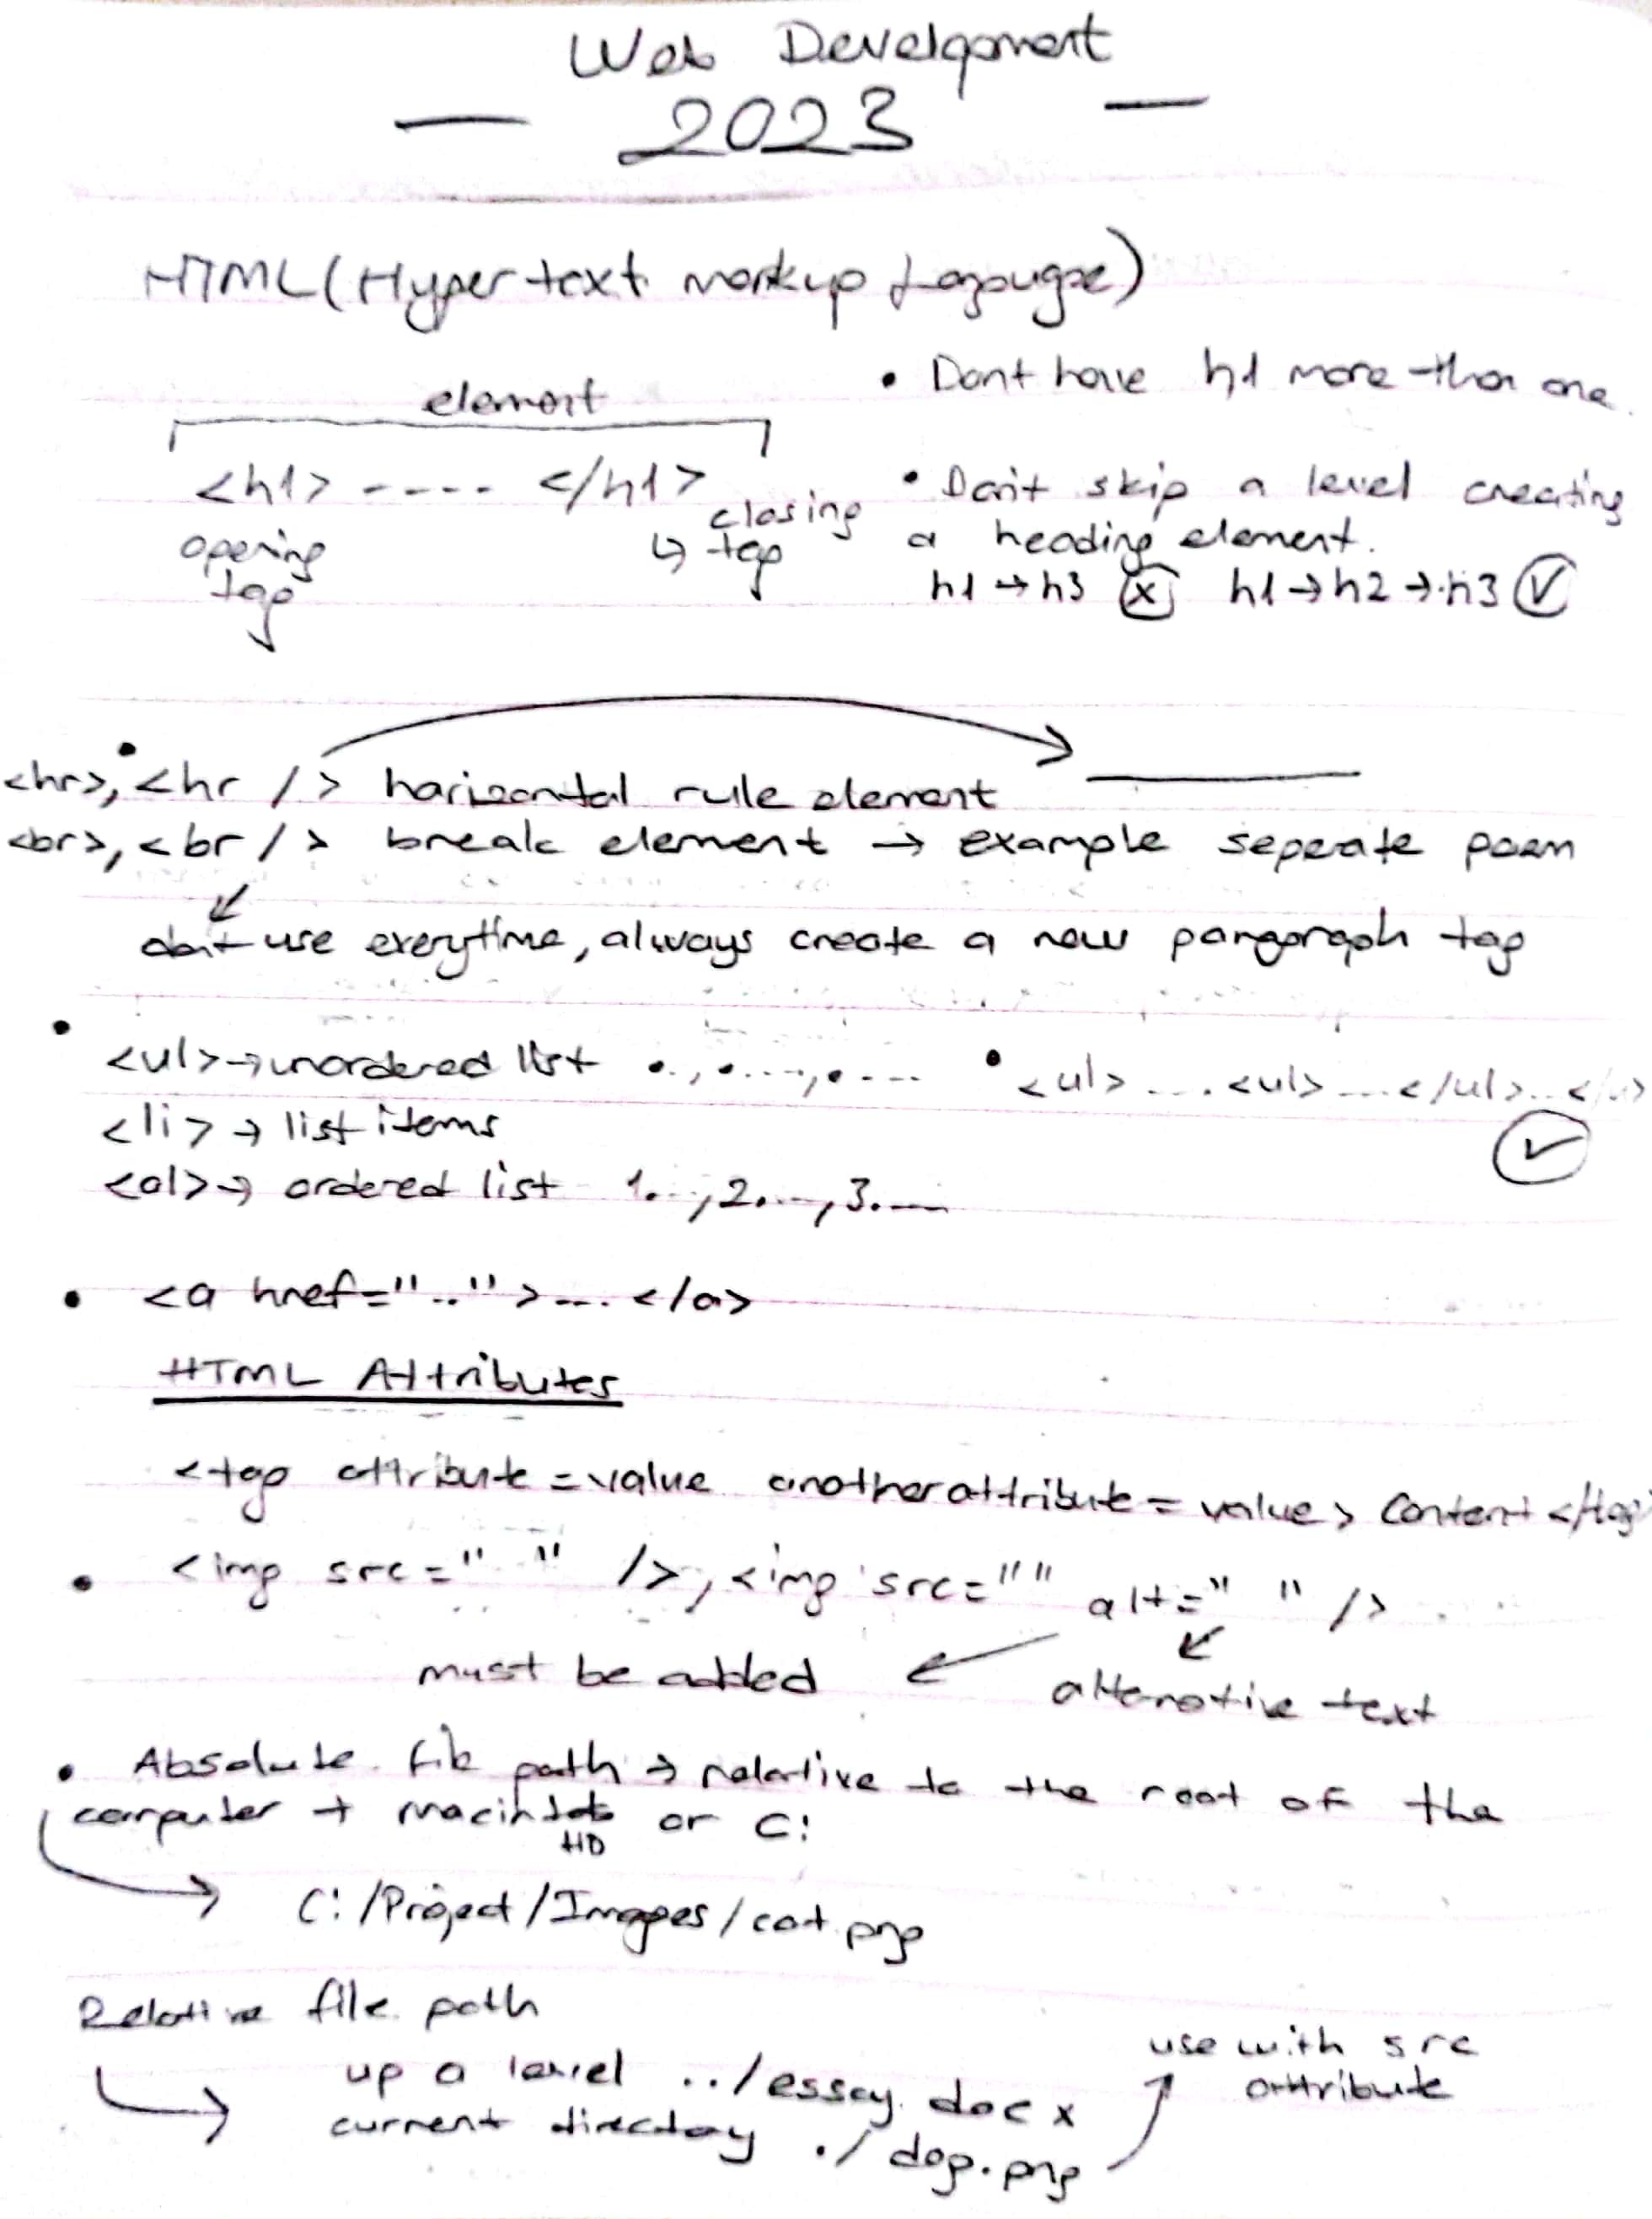 Web Development
— 2023 —
HTML (Hyper text markup Language)
element
<h1> ---- </h1>
opening tag
↳ closing tag
• Dont have h1 more than one.
• Don't skip a level creating
a heading element.
h1 → h3 ☒ h1 → h2 → h3 ✓
<hr>, <hr /> horizontal rule element
<br>, <br /> break element → example seperate poem
dont use everytime, always create a new paragraph tag
• <ul> → unordered list •.., •....., •----
<li> → list items
<ol> → ordered list 1...., 2...., 3.----
• <ul> .... <ul> .... </ul> ... </ul>
✓
• <a href=".."> .... </a>
HTML Attributes
<tag attribute = value anotherattribute = value> Content </tag>
• <img src=" " />, <img src="" alt=" " />
must be added
alternative text
• Absolute file path → relative to the root of the
computer → macintosh HD or C:
C:/Project/Images/cat.png
Relative file path
up a level ../essay.docx
current directory ./dog.png
use with src
attribute